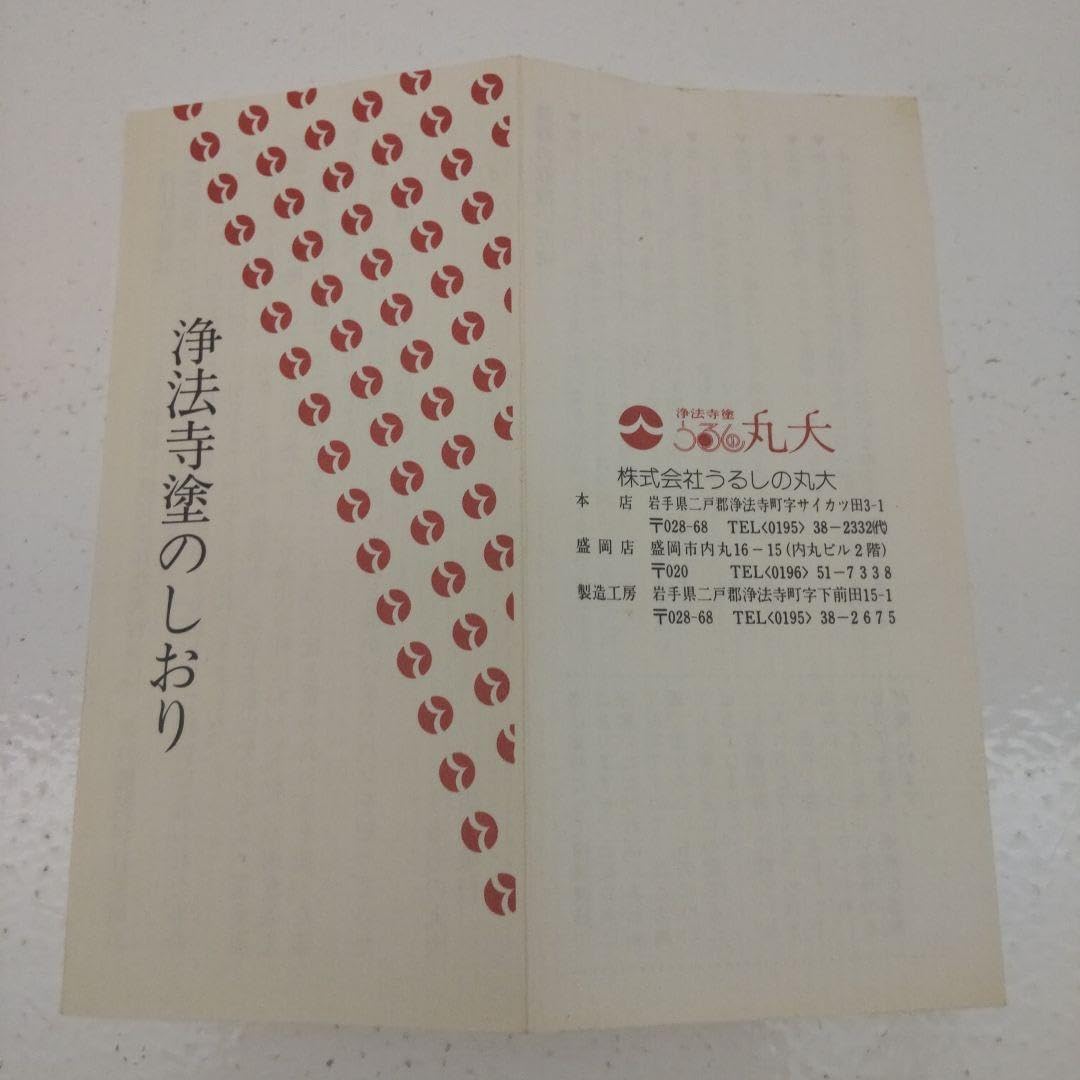 浄法寺塗のしおり
浄法寺塗
うるしの丸大
株式会社うるしの丸大
本店 岩手県二戸郡浄法寺町字サイカツ田3-1
〒028-68 TEL<0195> 38-2332㈹
盛岡店 盛岡市内丸16-15(内丸ビル2階)
〒020 TEL<0196> 51-7338
製造工房 岩手県二戸郡浄法寺町字下前田15-1
〒028-68 TEL<0195> 38-2675